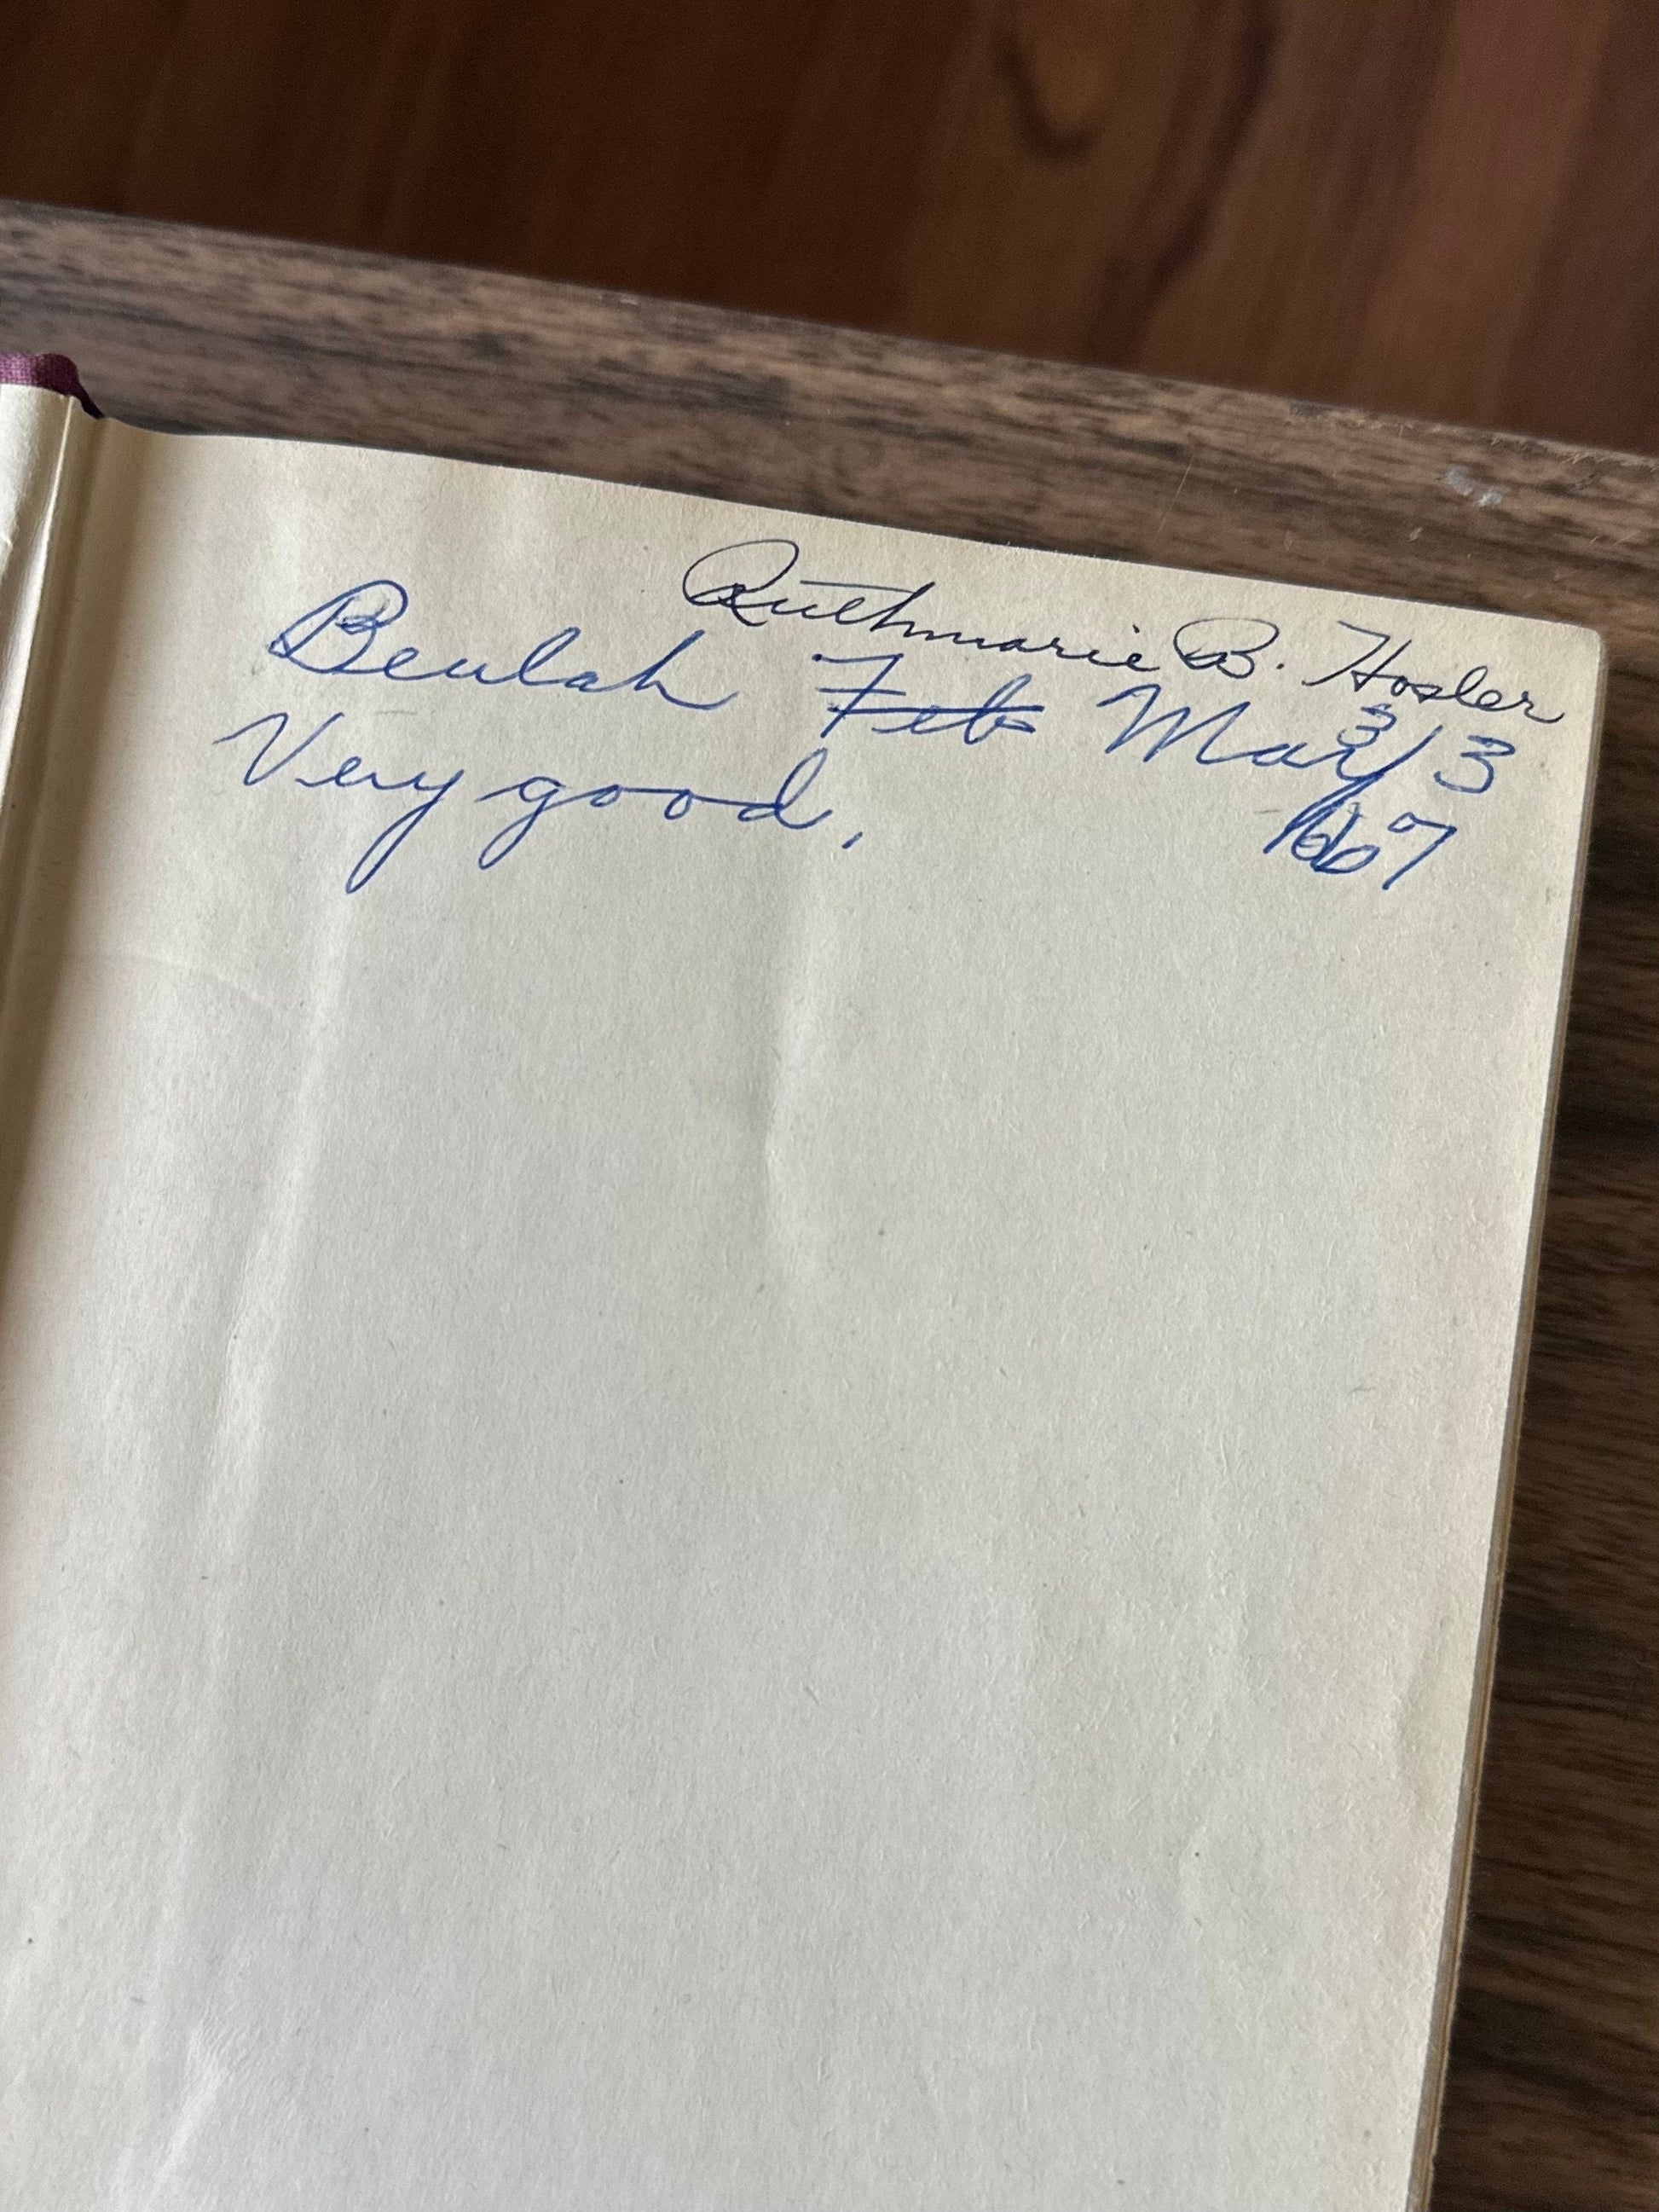 Ruthmarie B. Hosler
Beulah Feb Mar 3/3
Very good. 67